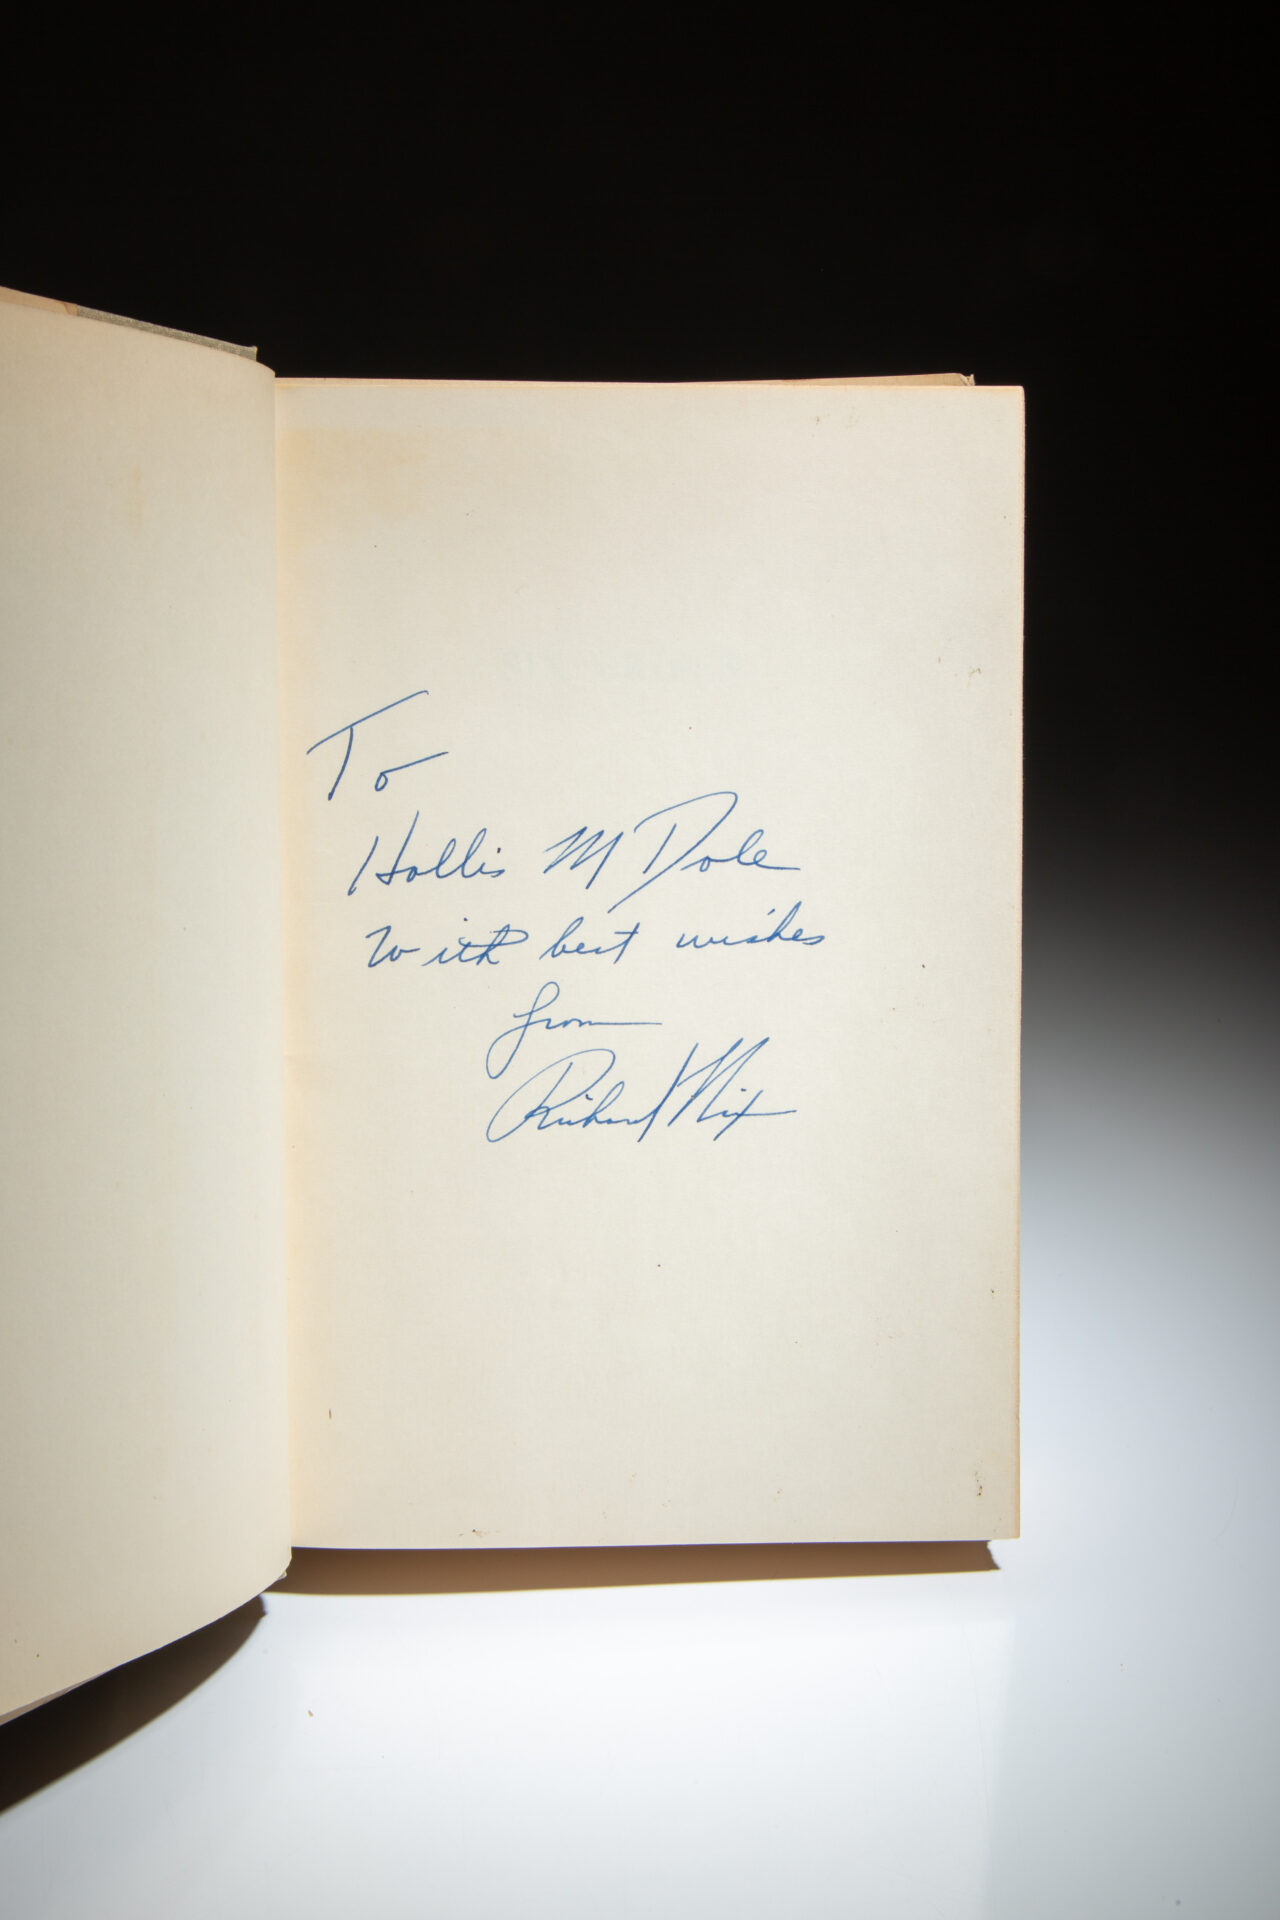 To
Hollis M Dole
With best wishes
from
Richard Nix